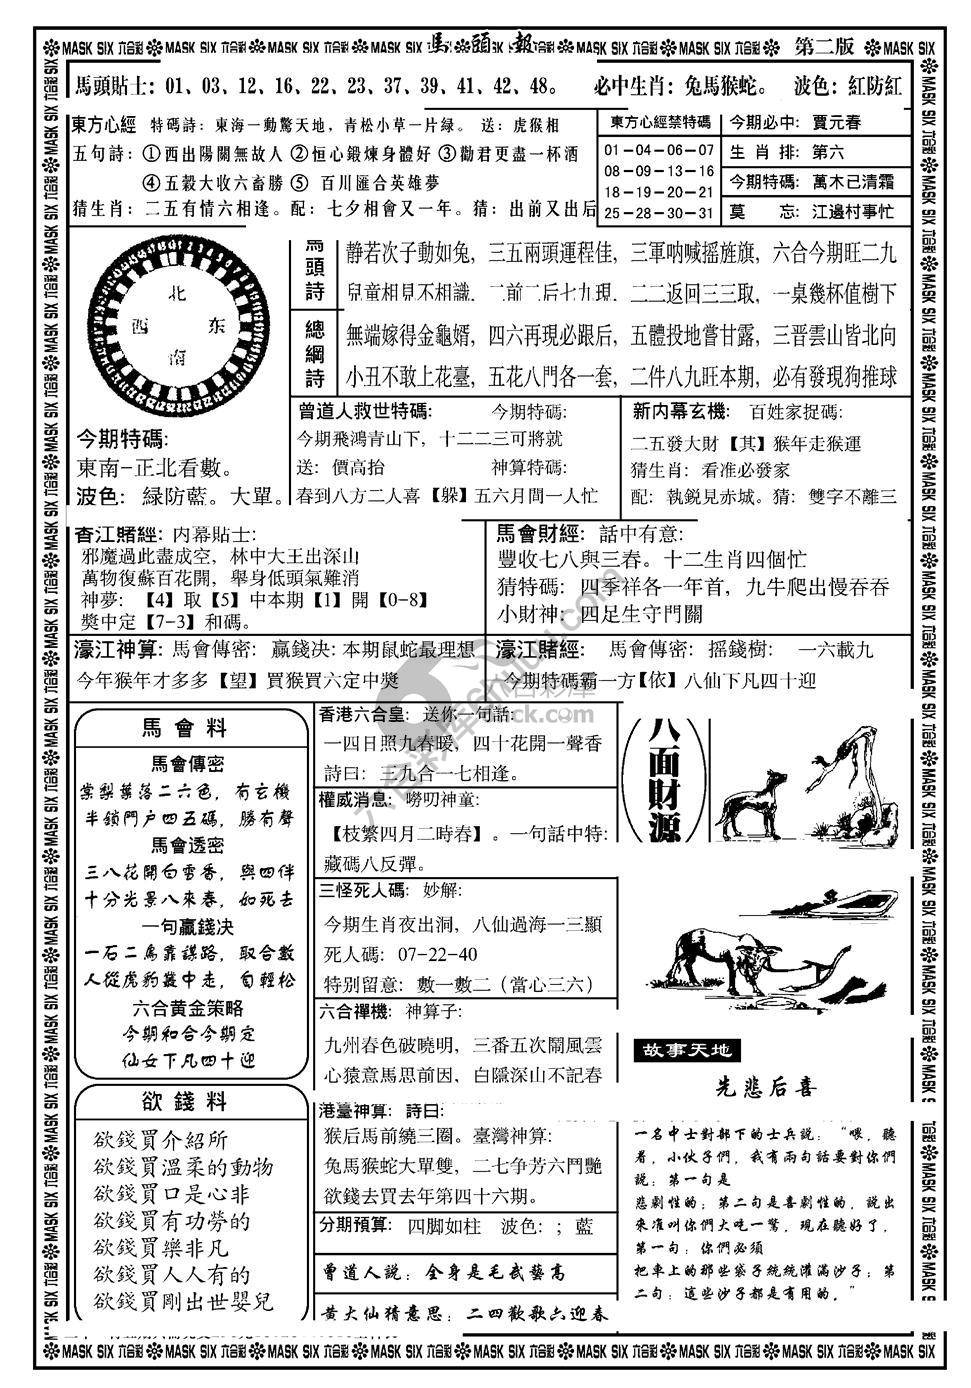 MASK SIX 六合彩 MASK SIX 六合彩 MASK SIX 六合彩 馬頭報 MASK SIX 六合彩 MASK SIX 六合彩 第二版 MASK SIX
馬頭貼士：01、03、12、16、22、23、37、39、41、42、48。 必中生肖：兔馬猴蛇。 波色：紅防紅
東方心經 特碼詩：東海一動驚天地，青松小草一片緑。 送：虎猴相
五句詩：①西出陽關無故人 ②恒心鍛煉身體好 ③勸君更盡一杯酒
④五穀大收六畜勝 ⑤ 百川匯合英雄夢
猜生肖：二五有情六相逢。配：七夕相會又一年。猜：出前又出后
東方心經禁特碼
01－04－06－07
08－09－13－16
18－19－20－21
25－28－30－31
今期必中：賈元春
生肖排：第六
今期特碼：萬木已清霜
莫忘：江邊村事忙
北
西 东
南
今期特碼：
東南-正北看數。
波色：緑防藍。大單。
馬頭詩
静若次子動如兔，三五兩頭運程佳，三軍呐喊摇旌旗，六合今期旺二九
兒童相見不相識，二前二后七九現，二二返回三三取，一桌幾杯值樹下
總綱詩
無端嫁得金龜婿，四六再現必跟后，五體投地嘗甘露，三晋雲山皆北向
小丑不敢上花臺，五花八門各一套，二件八九旺本期，必有發現狗推球
曾道人救世特碼： 今期特碼：
今期飛鴻青山下，十二二三可將就
送：價高抬 神算特碼：
春到八方二人喜【躲】五六月間一人忙
新内幕玄機： 百姓家捉碼：
二五發大財【其】猴年走猴運
猜生肖：看准必發家
配：執鋭見赤城。猜：雙字不離三
香江賭經：内幕貼士：
邪魔過此盡成空，林中大王出深山
萬物復蘇百花開，舉身低頭氣難消
神夢：【4】取【5】中本期【1】開【0-8】
獎中定【7-3】和碼。
馬會財經：話中有意：
豐收七八與三春。十二生肖四個忙
猜特碼：四季祥各一年首，九牛爬出慢吞吞
小財神：四足生守門關
濠江神算：馬會傳密： 赢錢决：本期鼠蛇最理想
今年猴年才多多【望】買猴買六定中獎
濠江賭經： 馬會傳密： 摇錢樹： 一六載九
今期特碼霸一方【依】八仙下凡四十迎
馬會料
馬會傳密
棠梨葉落二六色，有玄機
半鎖門户四五碼，勝有聲
馬會透密
三八花開白雪香，與四伴
十分光景八來春，如死去
一句贏錢决
一石二鳥靠謀路，取合數
人從虎豹叢中走，自輕松
六合黄金策略
今期和合今期定
仙女下凡四十迎
欲錢料
欲錢買介紹所
欲錢買温柔的動物
欲錢買口是心非
欲錢買有功勞的
欲錢買樂非凡
欲錢買人人有的
欲錢買剛出世嬰兒
香港六合皇：送你一句話：
一四日照九春暖，四十花開一聲香
詩曰：三九合一七相逢。
權威消息：嘮叨神童：
【枝繁四月二時春】。一句話中特：
藏碼八反彈。
三怪死人碼：妙解：
今期生肖夜出洞，八仙過海一三顯
死人碼：07-22-40
特别留意：數一數二（當心三六）
六合禪機：神算子：
九州春色破曉明，三番五次鬧風雲
心猿意馬思前因，白隱深山不記春
港臺神算：詩曰：
猴后馬前繞三圈。臺灣神算：
兔馬猴蛇大單雙，二七争芳六鬥艷
欲錢去買去年第四十六期。
分期預算：四脚如柱 波色：；藍
曾道人説：全身是毛武藝高
黄大仙猜意思：二四歡歌六迎春
八面財源
故事天地
先悲后喜
一名中士對部下的士兵説：“喂，聽
着，小伙子們，我有兩句話要對你們
説：第一句是
悲劇性的；第二句是喜劇性的，説出
來准叫你們大吃一驚，現在聽好了，
第一句：你們必須
把車上的那些袋子統統灌滿沙子；第
二句：這些沙子都是有用的。”
MASK SIX 六合彩 MASK SIX 六合彩 MASK SIX 六合彩 MASK SIX 六合彩 MASK SIX 六合彩 MASK SIX 六合彩 MASK SIX 六合彩 MASK SIX 六合彩 MASK SIX